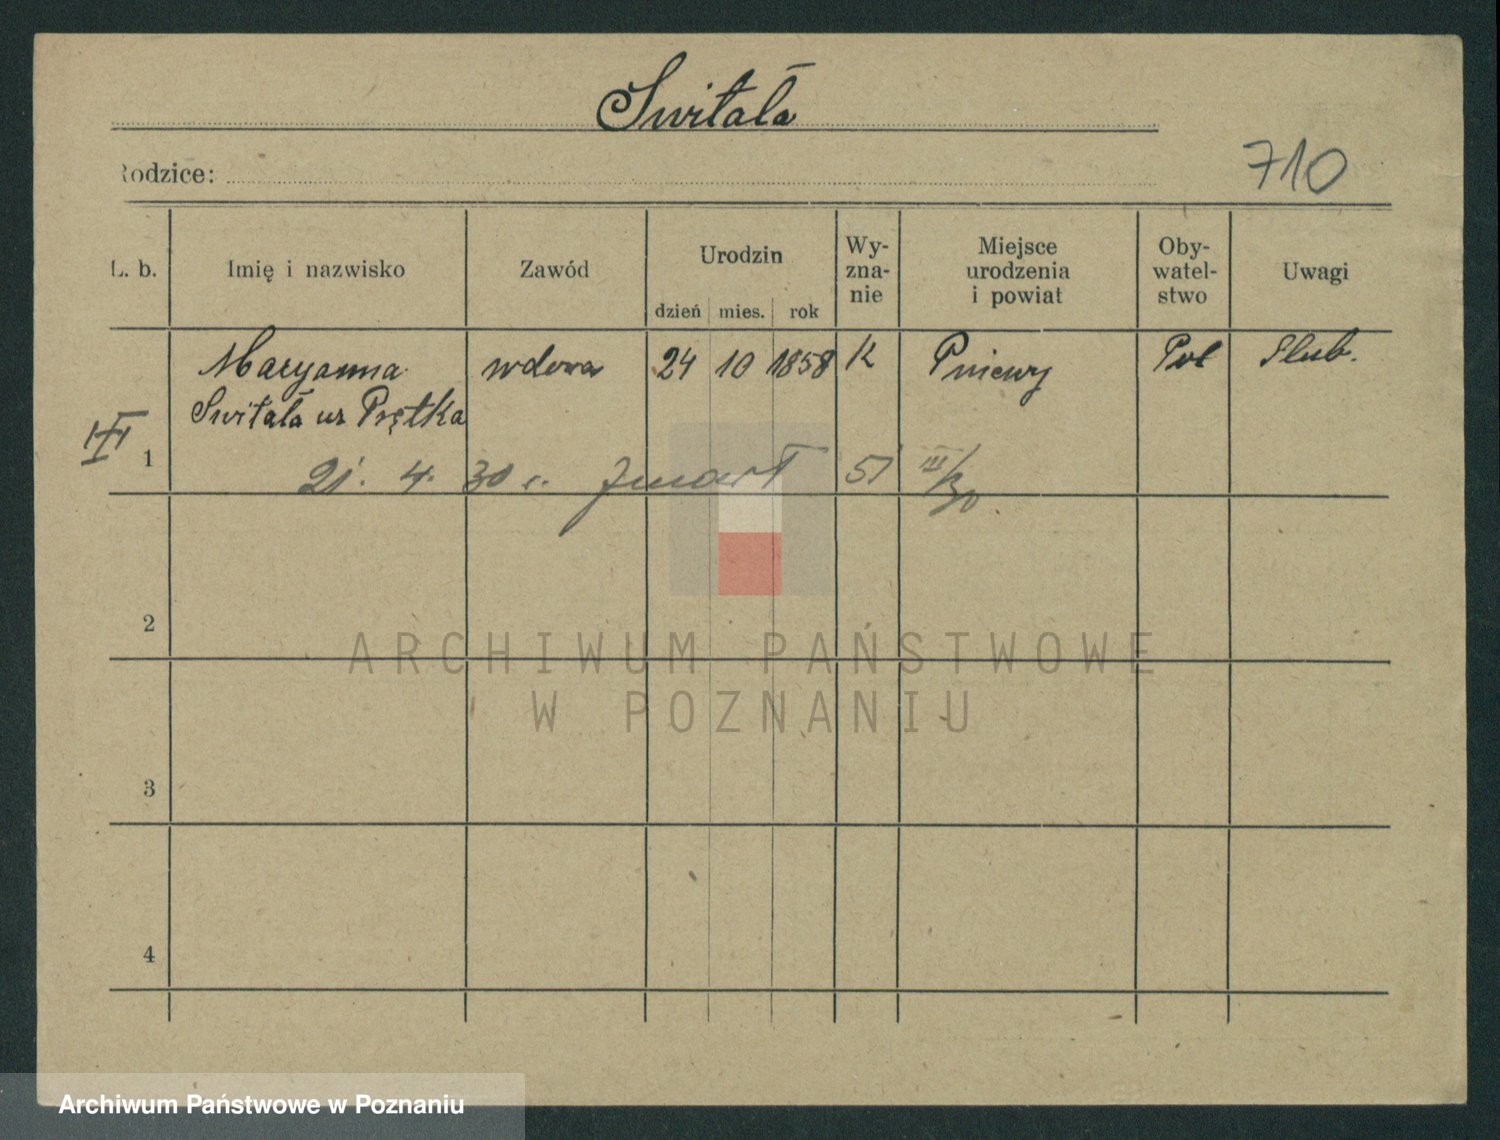 Switała
Rodzice:
710
L. b. Imię i nazwisko Zawód Urodzin Wy-zna-nie Miejsce urodzenia i powiat Oby-watel-stwo Uwagi
dzień mies. rok
Maryanna wdowa 24 10 1858 K Pniewy Pol Slub.
Switała ur Prętka
1
21. 4. 30 r. zmarł 51 III/30
2
ARCHIWUM PAŃSTWOWE
W POZNANIU
3
4
Archiwum Państwowe w Poznaniu